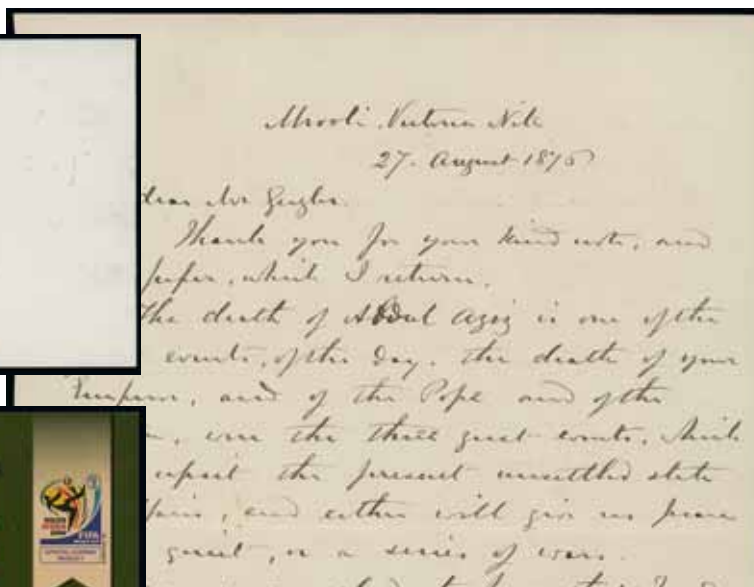 Mrooli Victoria Nile
27. August 1876
dear Mr Giegler.
Thank you for your kind note, and
paper, which I return.
The death of Abdul Aziz is one of the
events, of the day. the death of your
Emperor, and of the Pope and of the
, were the three great events, which
upset the present unsettled state
, and either will give us peace
, or a series of wars.
SOUTH AFRICA
2010
FIFA